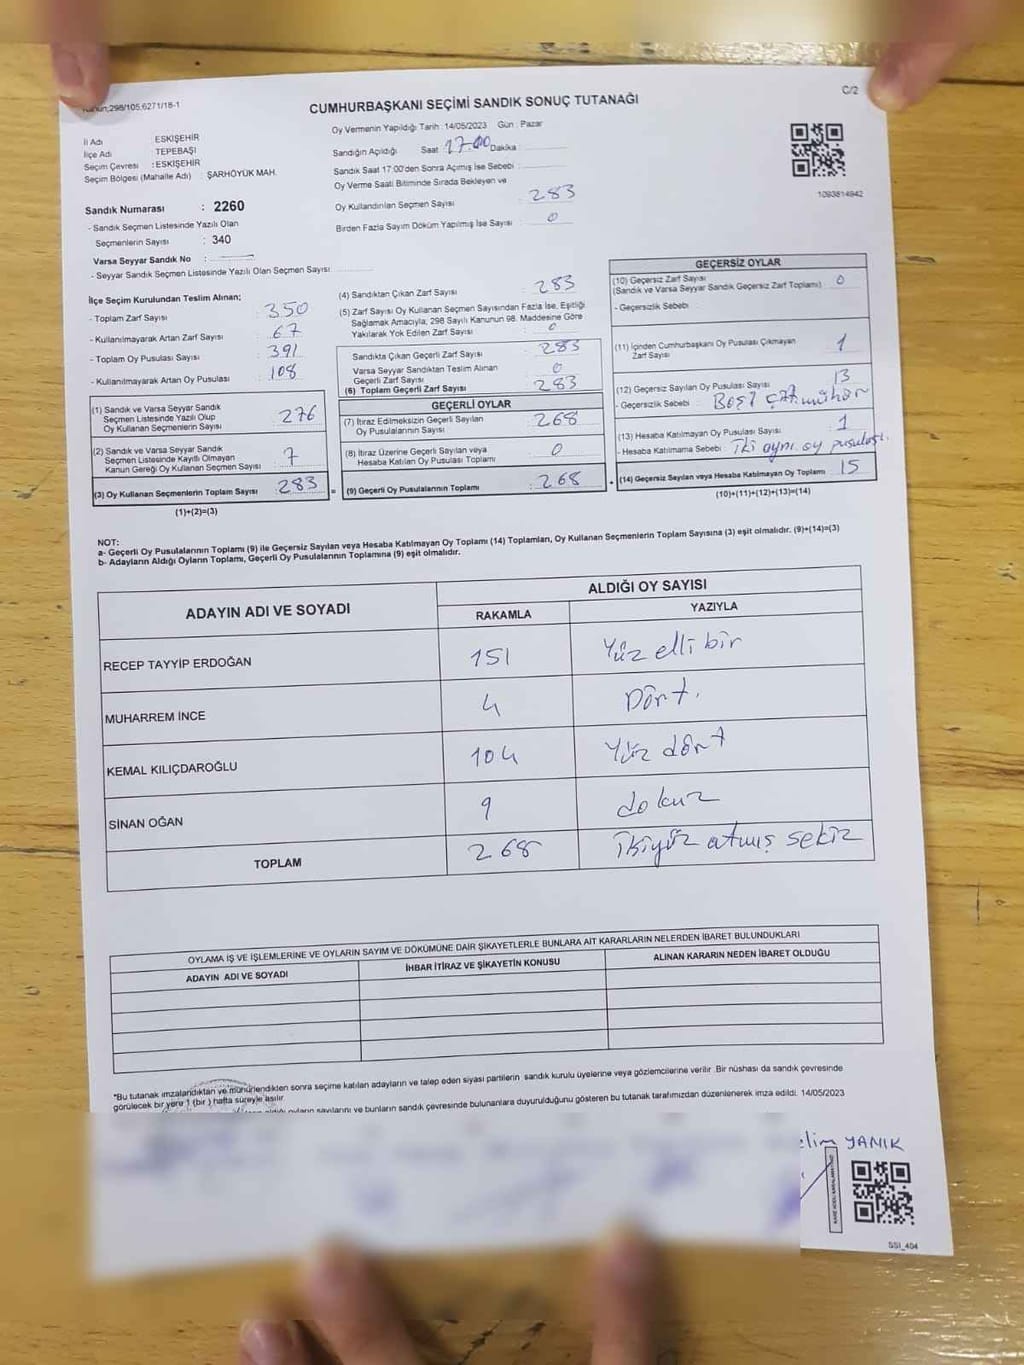 Kanun:298/105,6271/18-1
C/2
CUMHURBAŞKANI SEÇİMİ SANDIK SONUÇ TUTANAĞI
İl Adı ESKİŞEHİR
İlçe Adı TEPEBAŞI
Seçim Çevresi : ESKİŞEHİR
Seçim Bölgesi (Mahalle Adı) : ŞARHÖYÜK MAH.
Sandık Numarası : 2260
- Sandık Seçmen Listesinde Yazılı Olan
Seçmenlerin Sayısı : 340
Varsa Seyyar Sandık No :
- Seyyar Sandık Seçmen Listesinde Yazılı Olan Seçmen Sayısı:
Oy Vermenin Yapıldığı Tarih : 14/05/2023 Gün : Pazar
Sandığın Açıldığı Saat 17.00 Dakika
Sandık Saat 17:00'den Sonra Açımış İse Sebebi :
Oy Verme Saati Bitiminde Sırada Bekleyen ve
Oy Kullandırılan Seçmen Sayısı : 283
Birden Fazla Sayım Döküm Yapılmış İse Sayısı : 0
1093814942
İlçe Seçim Kurulundan Teslim Alınan;
- Toplam Zarf Sayısı : 350
- Kullanılmayarak Artan Zarf Sayısı : 67
- Toplam Oy Pusulası Sayısı : 391
- Kullanılmayarak Artan Oy Pusulası : 108
(1) Sandık ve Varsa Seyyar Sandık
Seçmen Listesinde Yazılı Olup
Oy Kullanan Seçmenlerin Sayısı : 276
(2) Sandık ve Varsa Seyyar Sandık
Seçmen Listesinde Kayıtlı Olmayan
Kanun Gereği Oy Kullanan Seçmen Sayısı : 7
(3) Oy Kullanan Seçmenlerin Toplam Sayısı : 283
(1)+(2)=(3)
(4) Sandıktan Çıkan Zarf Sayısı : 283
(5) Zarf Sayısı Oy Kullanan Seçmen Sayısından Fazla İse, Eşitliği
Sağlamak Amacıyla, 298 Sayılı Kanunun 98. Maddesine Göre
Yakılarak Yok Edilen Zarf Sayısı : 0
Sandıkta Çıkan Geçerli Zarf Sayısı : 283
Varsa Seyyar Sandıktan Teslim Alınan
Geçerli Zarf Sayısı : 0
(6) Toplam Geçerli Zarf Sayısı : 283
=
GEÇERLİ OYLAR
(7) İtiraz Edilmeksizin Geçerli Sayılan
Oy Pusulalarının Sayısı : 268
(8) İtiraz Üzerine Geçerli Sayılan veya
Hesaba Katılan Oy Pusulası Toplamı : 0
(9) Geçerli Oy Pusulalarının Toplamı : 268
+
GEÇERSİZ OYLAR
(10) Geçersiz Zarf Sayısı
(Sandık ve Varsa Seyyar Sandık Geçersiz Zarf Toplamı) : 0
- Geçersizlik Sebebi :
(11) İçinden Cumhurbaşkanı Oy Pusulası Çıkmayan
Zarf Sayısı : 1
(12) Geçersiz Sayılan Oy Pusulası Sayısı : 13
- Geçersizlik Sebebi : Boş, çift mühür
(13) Hesaba Katılmayan Oy Pusulası Sayısı : 1
- Hesaba Katılmama Sebebi : İki aynı oy pusulası.
(14) Geçersiz Sayılan veya Hesaba Katılmayan Oy Toplamı : 15
(10)+(11)+(12)+(13)=(14)
NOT:
a- Geçerli Oy Pusulalarının Toplamı (9) ile Geçersiz Sayılan veya Hesaba Katılmayan Oy Toplamı (14) Toplamları, Oy Kullanan Seçmenlerin Toplam Sayısına (3) eşit olmalıdır. (9)+(14)=(3)
b- Adayların Aldığı Oyların Toplamı, Geçerli Oy Pusulalarının Toplamına (9) eşit olmalıdır.
ADAYIN ADI VE SOYADI ALDIĞI OY SAYISI
RAKAMLA YAZIYLA
RECEP TAYYİP ERDOĞAN 151 Yüz elli bir
MUHARREM İNCE 4 Dört.
KEMAL KILIÇDAROĞLU 104 Yüz dört
SİNAN OĞAN 9 dokuz
TOPLAM 268 ikiyüz atmış sekiz
OYLAMA İŞ VE İŞLEMLERİNE VE OYLARIN SAYIM VE DÖKÜMÜNE DAİR ŞİKAYETLERLE BUNLARA AİT KARARLARIN NELERDEN İBARET BULUNDUKLARI
ADAYIN ADI VE SOYADI İHBAR İTİRAZ VE ŞİKAYETİN KONUSU ALINAN KARARIN NEDEN İBARET OLDUĞU
*Bu tutanak imzalandıktan ve mühürlendikten sonra seçime katılan adayların ve talep eden siyasi partilerin sandık kurulu üyelerine veya gözlemcilerine verilir .Bir nüshası da sandık çevresinde
görülecek bir yere 1 (bir ) hafta süreyle asılır.
oyların sayılarını ve bunların sandık çevresinde bulunanlara duyurulduğunu gösteren bu tutanak tarafımızdan düzenlenerek imza edildi. 14/05/2023
elim YANIK
SSI_404